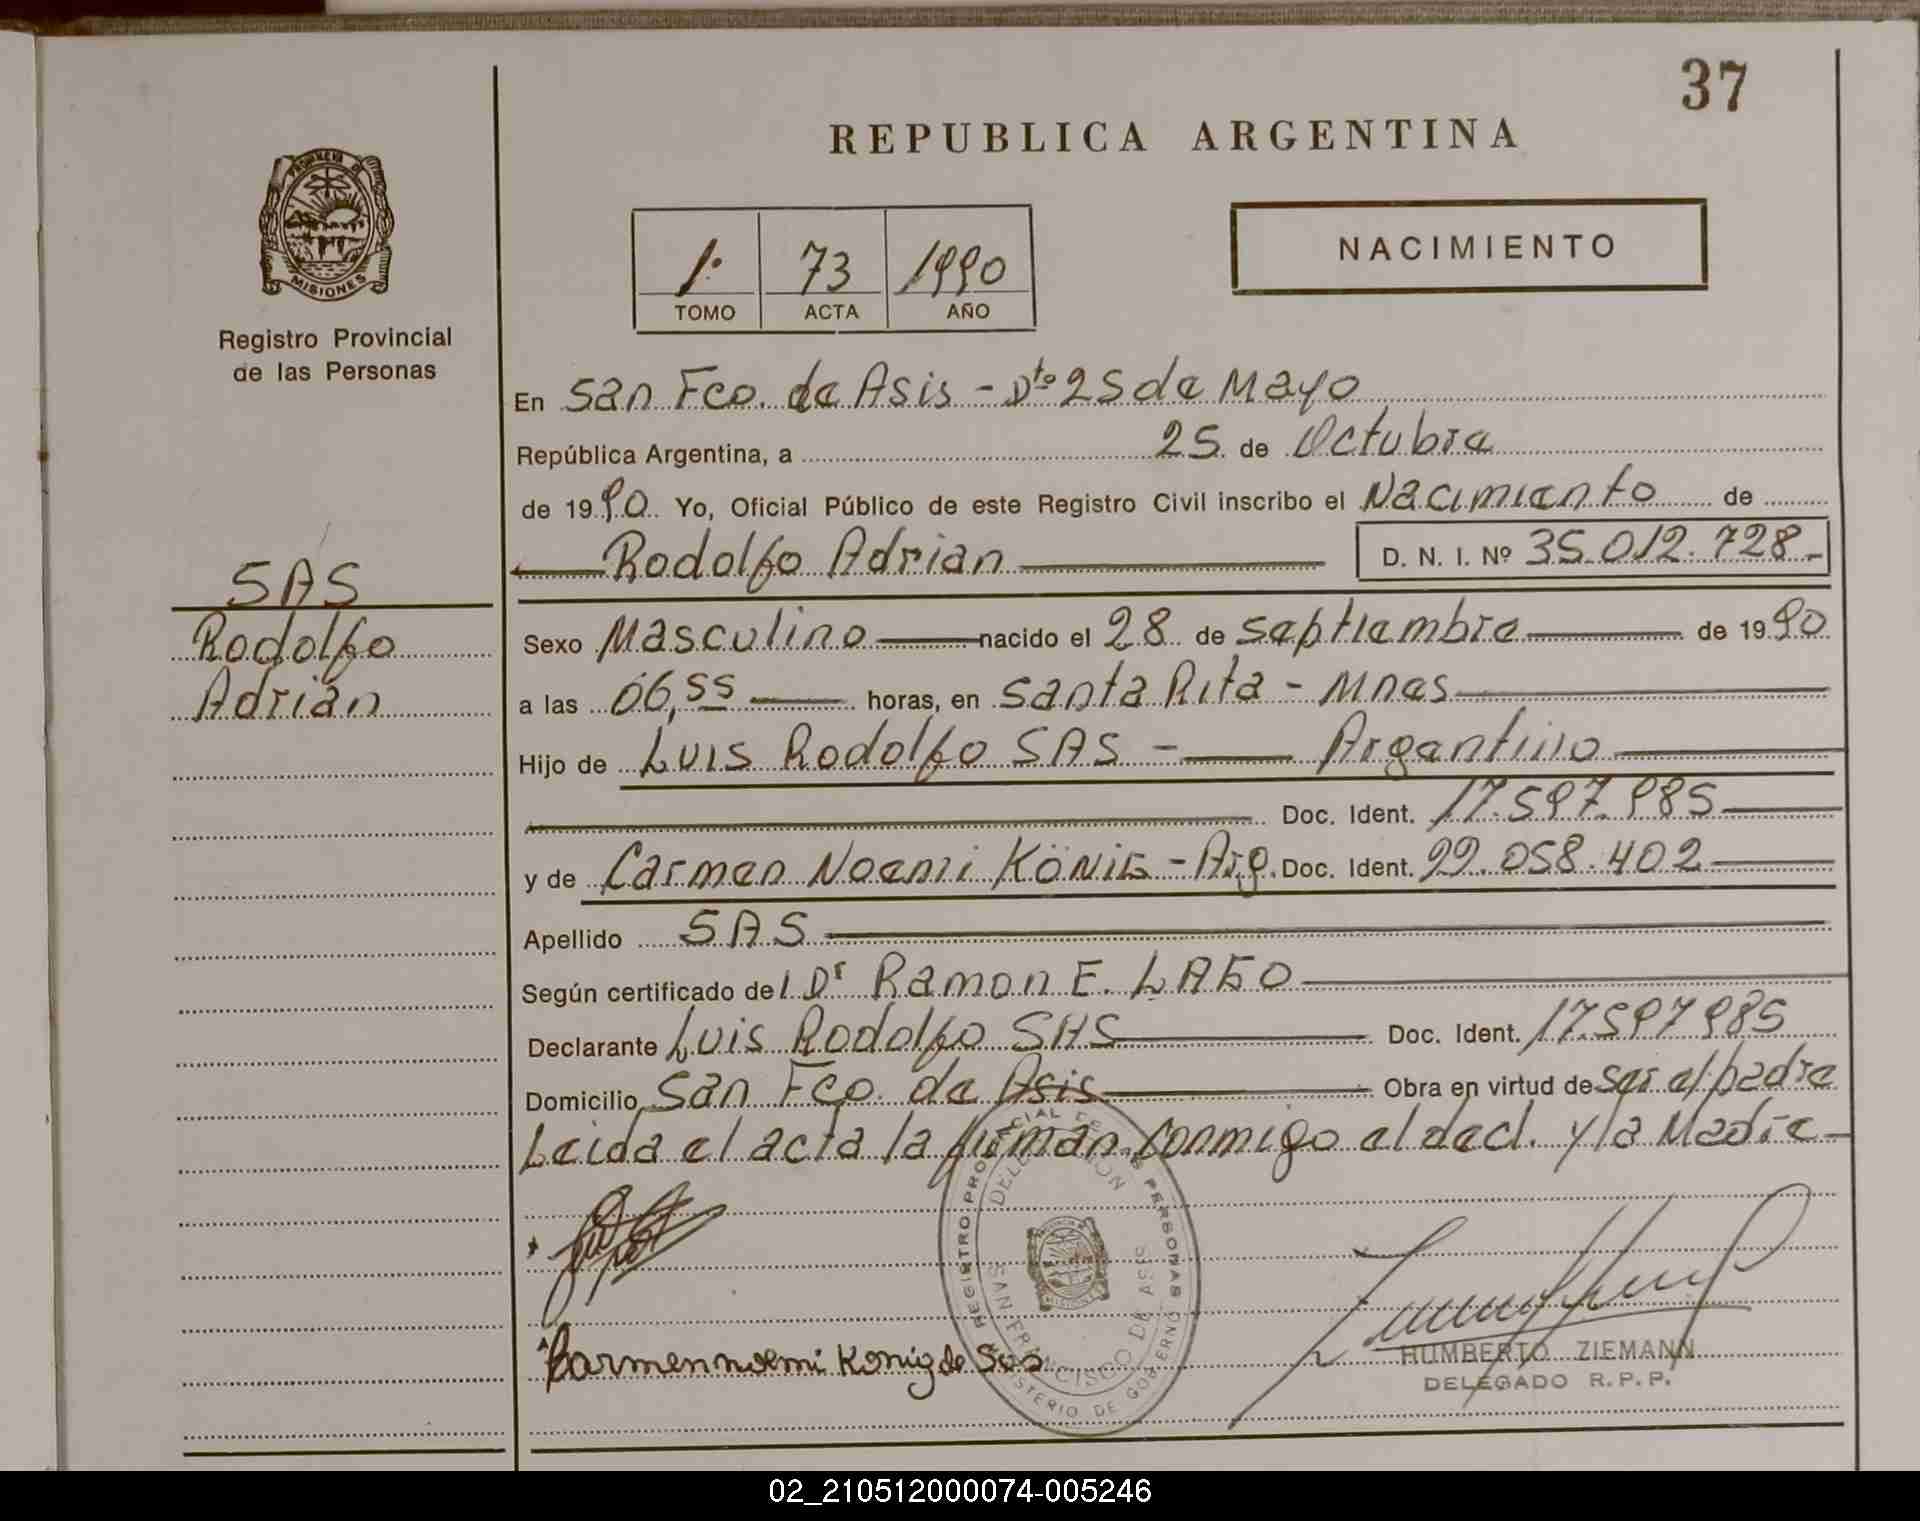 37
REPUBLICA ARGENTINA
PROVINCIA DE
MISIONES
Registro Provincial
de las Personas
1º 73 1990
TOMO ACTA AÑO
NACIMIENTO
En San Fco. de Asis - Dto 25 de Mayo
República Argentina, a 25 de Octubre
de 1990 Yo, Oficial Público de este Registro Civil inscribo el Nacimiento de
Rodolfo Adrian D. N. I. Nº 35.012.728-
SAS
Rodolfo
Adrian
Sexo Masculino nacido el 28 de septiembre de 1990
a las 06,55 horas, en Santa Rita - Mnes
Hijo de Luis Rodolfo SAS - Argentino
Doc. Ident. 17.597.985
y de Carmen Noemi KÖNIG - Arg. Doc. Ident. 22.058.402
Apellido SAS
Según certificado del Dr Ramon E. LAGO
Declarante Luis Rodolfo SAS Doc. Ident. 17.597985
Domicilio San Fco. de Asis Obra en virtud de ser el padre
Leida el acta la firman conmigo el decl. y la Madre-
REGISTRO PROVINCIAL DE LAS PERSONAS
DELEGACION
SAN FRANCISCO DE ASIS
MINISTERIO DE GOBIERNO
Carmen noemi Konig de Sas
HUMBERTO ZIEMANN
DELEGADO R.P.P.
02_210512000074-005246